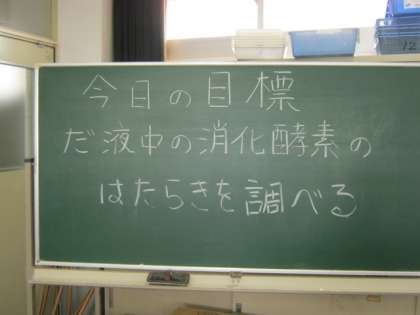 今日の目標
だ液中の消化酵素の
はたらきを調べる
12